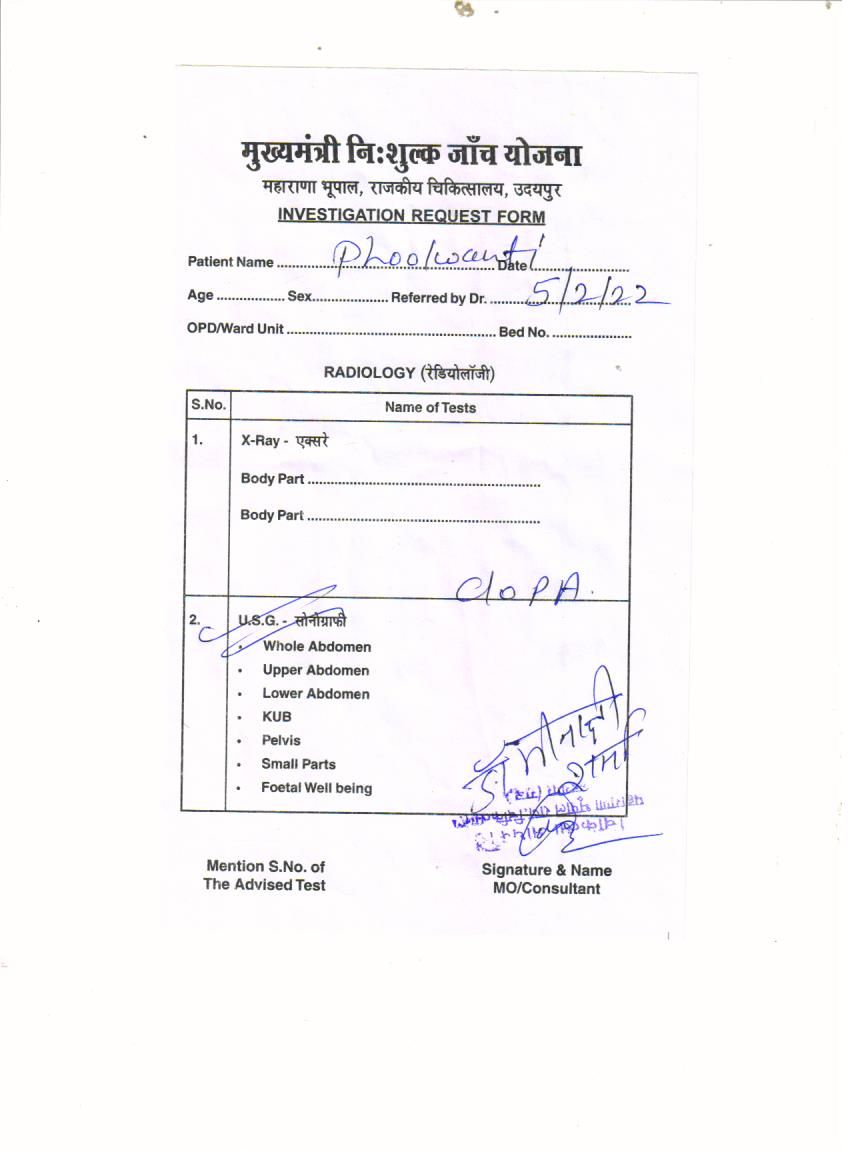 मुख्यमंत्री नि:शुल्क जाँच योजना
महाराणा भूपाल, राजकीय चिकित्सालय, उदयपुर
INVESTIGATION REQUEST FORM
Patient Name ........ Phoolwanti ........ Date ........
Age ........ Sex........ Referred by Dr. ........ 5/2/22
OPD/Ward Unit ........ Bed No. ........
RADIOLOGY (रेडियोलॉजी)
S.No. Name of Tests
1. X-Ray - एक्सरे
Body Part ........
Body Part ........
c/o PA.
2. U.S.G. - सोनोग्राफी
• Whole Abdomen
• Upper Abdomen
• Lower Abdomen
• KUB
• Pelvis
• Small Parts
• Foetal Well being
डॉ मीनाक्षी
शर्मा
Mention S.No. of
The Advised Test
Signature & Name
MO/Consultant